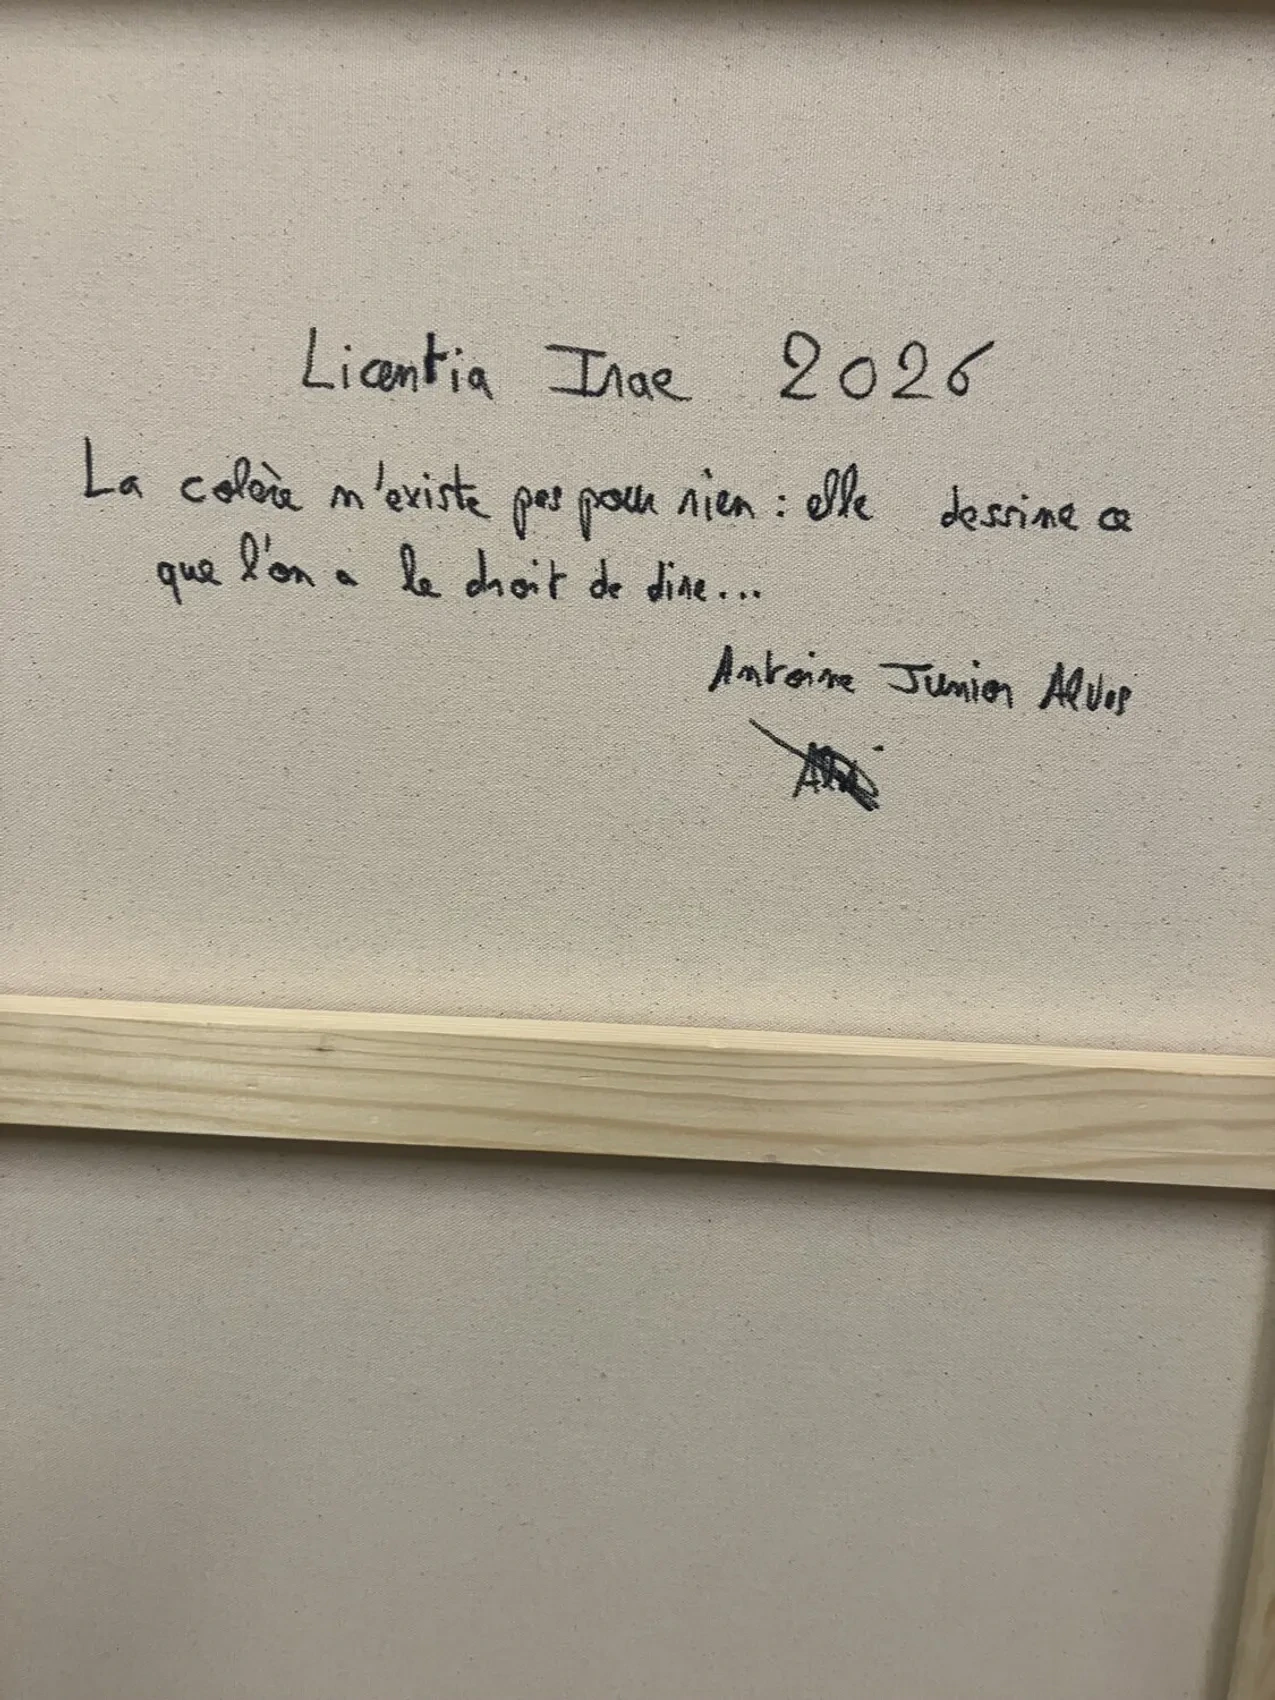 Licentia Irae 2026
La colère n'existe pas pour rien : elle dessine ce
que l'on a le droit de dire...
Antoine Junior Alves